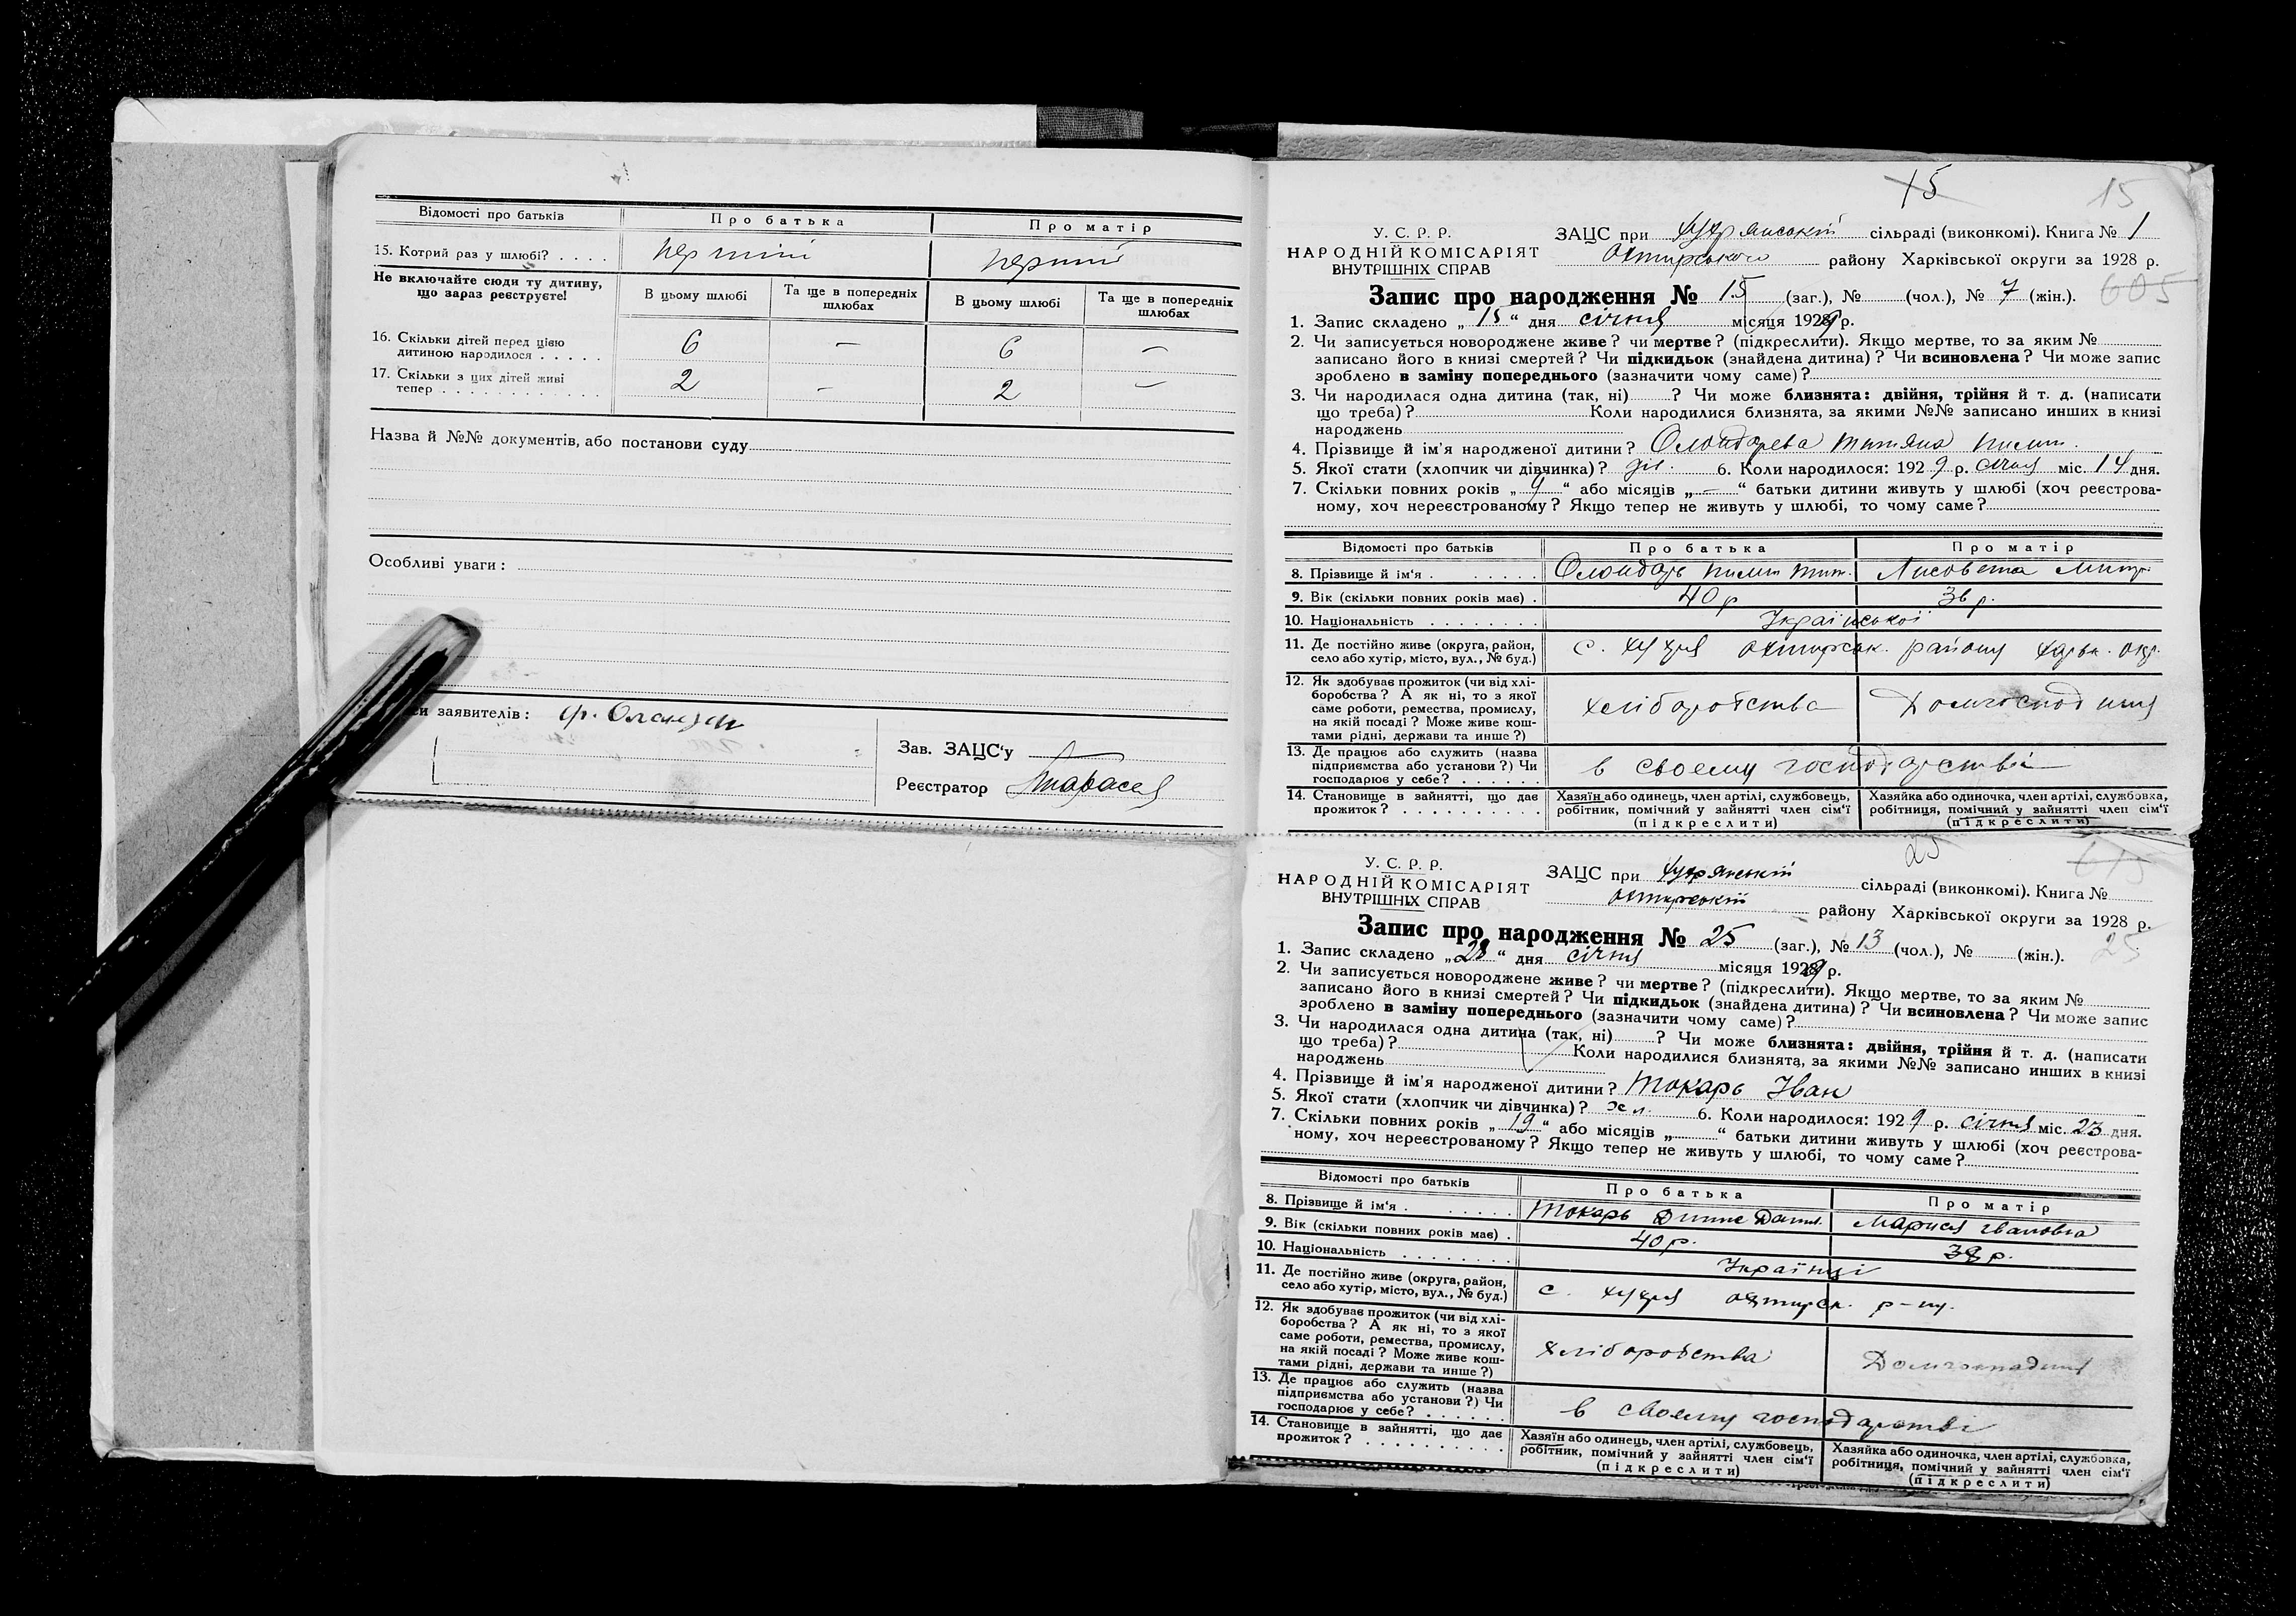 Відомості про батьків Про батька Про матір
15. Котрий раз у шлюбі? . . . . перший перший
Не включайте сюди ту дитину, що зараз реєструєте!
В цьому шлюбі Та ще в попередніх шлюбах В цьому шлюбі Та ще в попередніх шлюбах
16. Скільки дітей перед цією
дитиною народилося . . . . . 6 — 6 —
17. Скільки з цих дітей живі
тепер . . . . . . . . . . . . 2 — 2 —
Назва й №№ документів, або постанови суду
Особливі уваги:
си заявителів:
Зав. ЗАЦС'у
Реєстратор
15 15
У. С. Р. Р.
НАРОДНІЙ КОМІСАРІЯТ
ВНУТРІШНІХ СПРАВ
ЗАЦС при сільраді (виконкомі). Книга № 1
Охтирського району Харківської округи за 1928 р.
605
Запис про народження № 15 (заг.), № (чол.), № 7 (жін.).
1. Запис складено „ 15 “ дня січня місяця 1929 р.
2. Чи записується новороджене живе? чи мертве? (підкреслити). Якщо мертве, то за яким №
записано його в книзі смертей? Чи підкидьок (знайдена дитина)? Чи всиновлена? Чи може запис
зроблено в заміну попереднього (зазначити чому саме)?
3. Чи народилася одна дитина (так, ні) ? Чи може близнята: двійня, трійня й т. д. (написати
що треба)? Коли народилися близнята, за якими №№ записано инших в книзі
народжень
4. Прізвище й ім'я народженої дитини?
5. Якої стати (хлопчик чи дівчинка)? 6. Коли народилося: 1929 р. січня міс. 14 дня.
7. Скільки повних років „ 9 “ або місяців „ — “ батьки дитини живуть у шлюбі (хоч реєстрова-
ному, хоч нереєстрованому? Якщо тепер не живуть у шлюбі, то чому саме?
Відомості про батьків Про батька Про матір
8. Прізвище й ім'я . . . . . .
9. Вік (скільки повних років має) . 40 р 36 р.
10. Національність . . . . . . . . Української
11. Де постійно живе (округа, район,
село або хутір, місто, вул., № буд.) с. Хухря Охтирськ. району Харьк. окр.
12. Як здобуває прожиток (чи від хлі-
боробства? А як ні, то з якої
саме роботи, ремества, промислу,
на якій посаді? Може живе кош-
тами рідні, держави та инше?) хліборобства Домгосподиня
13. Де працює або служить (назва
підприємства або установи?) Чи
господарює у себе? . . . . . . в своему господарстві
14. Становище в зайнятті, що дає
прожиток? . . . . . . . . . .
Хазяїн або одинець, член артілі, службовець,
робітник, помічний у зайнятті член сім'ї
(підкреслити)
Хазяйка або одиночка, член артілі, службовка,
робітниця, помічний у зайнятті член сім'ї
(підкреслити)
25 615
У. С. Р. Р.
НАРОДНІЙ КОМІСАРІЯТ
ВНУТРІШНІХ СПРАВ
ЗАЦС при сільраді (виконкомі). Книга №
Охтирській району Харківської округи за 1928 р.
25
Запис про народження № 25 (заг.), № 13 (чол.), № (жін.).
1. Запис складено „ 28 “ дня січня місяця 1929 р.
2. Чи записується новороджене живе? чи мертве? (підкреслити). Якщо мертве, то за яким №
записано його в книзі смертей? Чи підкидьок (знайдена дитина)? Чи всиновлена? Чи може запис
зроблено в заміну попереднього (зазначити чому саме)?
3. Чи народилася одна дитина (так, ні) ? Чи може близнята: двійня, трійня й т. д. (написати
що треба)? Коли народилися близнята, за якими №№ записано инших в книзі
народжень
4. Прізвище й ім'я народженої дитини? Токарь Іван
5. Якої стати (хлопчик чи дівчинка)? хл. 6. Коли народилося: 1929 р. січня міс. 23 дня.
7. Скільки повних років „ 19 “ або місяців „ “ батьки дитини живуть у шлюбі (хоч реєстрова-
ному, хоч нереєстрованому? Якщо тепер не живуть у шлюбі, то чому саме?
Відомості про батьків Про батька Про матір
8. Прізвище й ім'я . . . . . . Токарь Марися Івановна
9. Вік (скільки повних років має) . 40 р. 38 р.
10. Національність . . . . . . . Українці
11. Де постійно живе (округа, район,
село або хутір, місто, вул., № буд.) с. Хухря Охтирськ. р-ну.
12. Як здобуває прожиток (чи від хлі-
боробства? А як ні, то з якої
саме роботи, ремества, промислу,
на якій посаді? Може живе кош-
тами рідні, держави та инше?) хліборобства Домгосподиня
13. Де працює або служить (назва
підприємства або установи?) Чи
господарює у себе? . . . . . . в своему господарстві
14. Становище в зайнятті, що дає
прожиток? . . . . . . . . . .
Хазяїн або одинець, член артілі, службовець,
робітник, помічний у зайнятті член сім'ї
(підкреслити)
Хазяйка або одиночка, член артілі, службовка,
робітниця, помічний у зайнятті член сім'ї
(підкреслити)